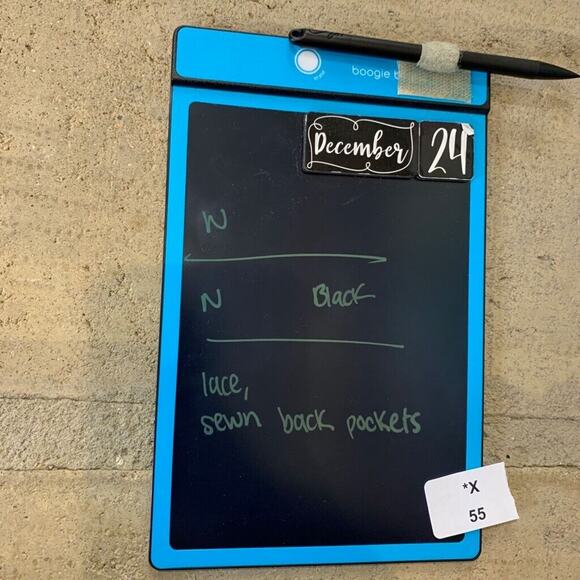 boogie
December 24
W
N Black
lace,
sewn back pockets
*X
55